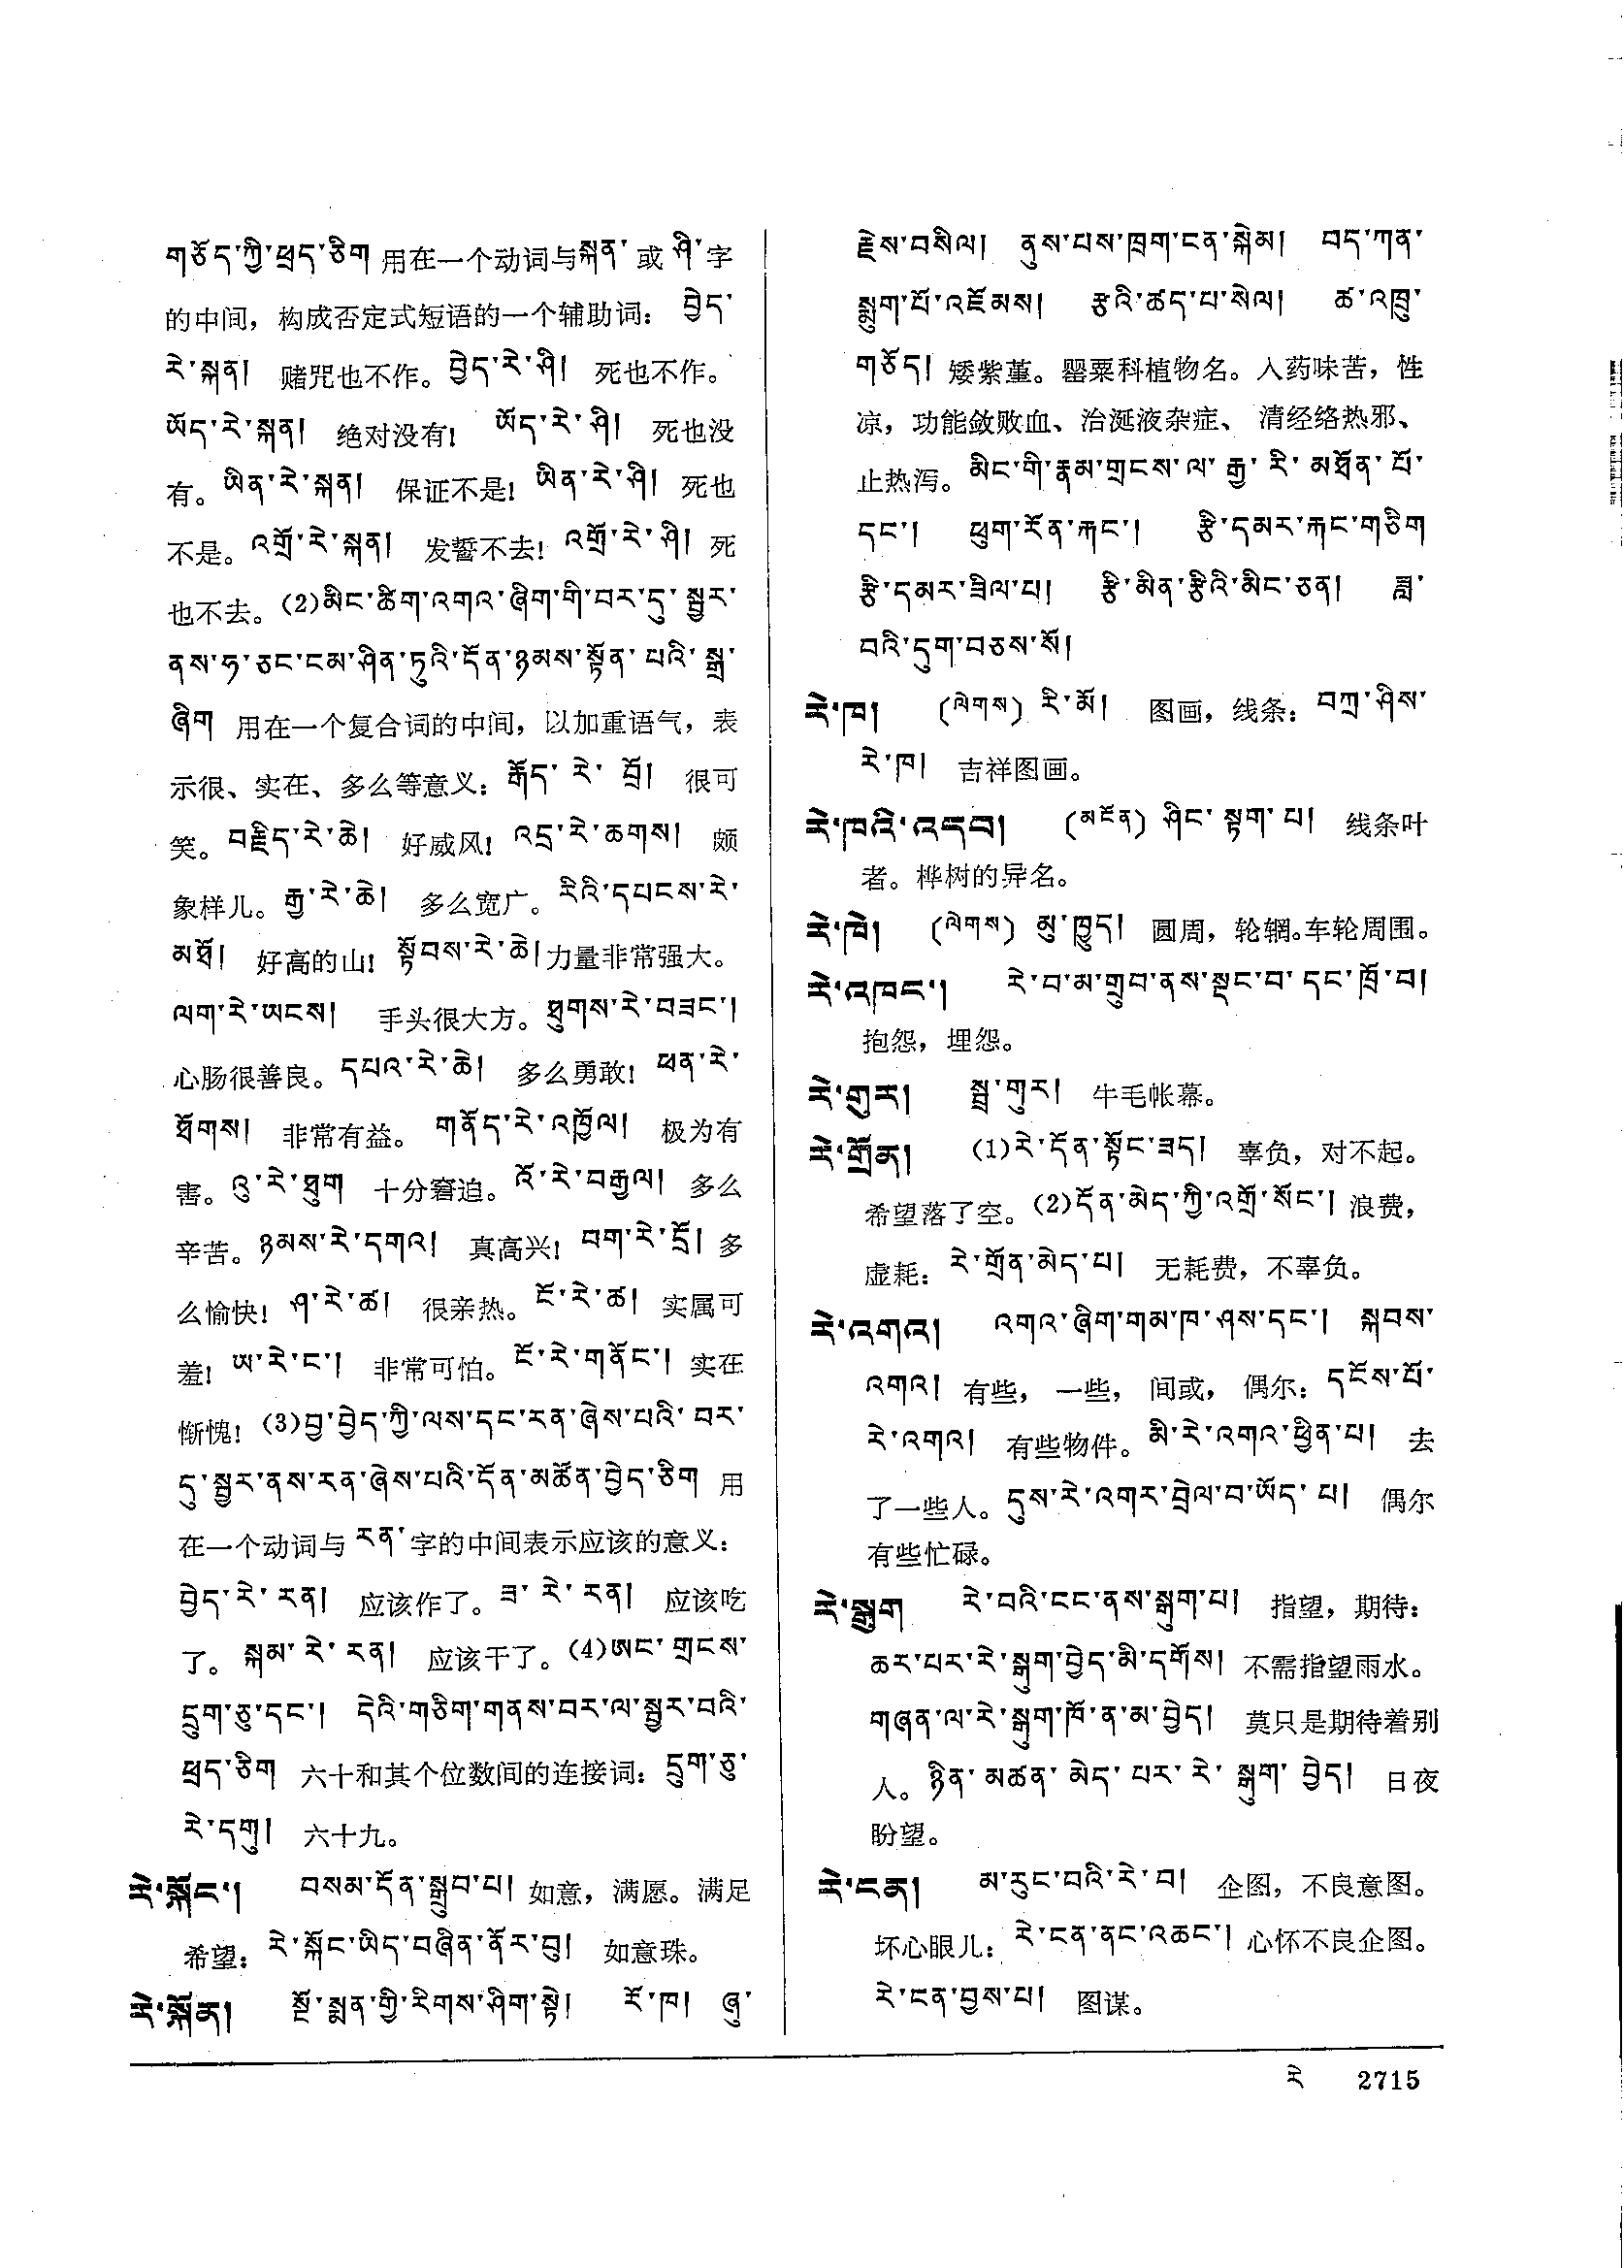 གཅོད་ཀྱི་ཕྲད་ཅིག 用在一个动词与སྐན་ 或 ཤི་ 字
的中间，构成否定式短语的一个辅助词： བྱེད་
རེ་སྐན། 赌咒也不作。བྱེད་རེ་ཤི། 死也不作。
ཡོད་རེ་སྐན། 绝对没有！ ཡོད་རེ་ཤི། 死也没
有。ཡིན་རེ་སྐན། 保证不是！ཡིན་རེ་ཤི། 死也
不是。འགྲོ་རེ་སྐན། 发誓不去！འགྲོ་རེ་ཤི། 死
也不去。(2)མིང་ཚིག་འགའ་ཞིག་གི་བར་དུ་སྦྱར་
ནས་ཧ་ཅང་ངམ་ཤིན་ཏུའི་དོན་ཉམས་སྟོན་པའི་སྒྲ་
ཞིག 用在一个复合词的中间，以加重语气，表
示很、实在、多么等意义：རྒོད་རེ་བྲོ། 很可
笑。བརྗིད་རེ་ཆེ། 好威风！འདྲ་རེ་ཆགས། 颇
象样儿。རྒྱ་རེ་ཆེ། 多么宽广。རིའི་དཔངས་རེ་
མཐོ། 好高的山！སྟོབས་རེ་ཆེ།力量非常强大。
ལག་རེ་ཡངས། 手头很大方。ཐུགས་རེ་བཟང་།
心肠很善良。དཔའ་རེ་ཆེ། 多么勇敢！ཕན་རེ་
ཐོགས། 非常有益。 གནོད་རེ་འཁྱོལ། 极为有
害。འུ་རེ་ཐུག 十分窘迫。འོ་རེ་བརྒྱལ། 多么
辛苦。ཉམས་རེ་དགའ། 真高兴！བག་རེ་དྲོ། 多
么愉快！ཤ་རེ་ཚ། 很亲热。ངོ་རེ་ཚ། 实属可
羞！ཡ་རེ་ང་། 非常可怕。ངོ་རེ་གནོང་། 实在
惭愧！(3)བྱ་བྱེད་ཀྱི་ལས་དང་རན་ཞེས་པའི་བར་
དུ་སྦྱར་ནས་རན་ཞེས་པའི་དོན་མཚོན་བྱེད་ཅིག 用
在一个动词与 རན་字的中间表示应该的意义：
བྱེད་རེ་རན། 应该作了。ཟ་རེ་རན། 应该吃
了。སྐམ་རེ་རན། 应该干了。(4)ཨང་གྲངས་
དྲུག་ཅུ་དང་། དེའི་གཅིག་གནས་བར་ལ་སྦྱར་བའི་
ཕྲད་ཅིག 六十和其个位数间的连接词：དྲུག་ཅུ་
རེ་དགུ། 六十九。
རེ་སྐོང་། བསམ་དོན་སྒྲུབ་པ། 如意，满愿。满足
希望：རེ་སྐོང་ཡིད་བཞིན་ནོར་བུ། 如意珠。
རེ་སྐོན། སྔོ་སྨན་གྱི་རིགས་ཤིག་སྟེ། རོ་ཁ། ཞུ་
རྗེས་བསིལ། ནུས་པས་ཁྲག་ངན་སྐེམ། བད་ཀན་
སྨུག་པོ་འཇོམས། རྩའི་ཚད་པ་སེལ། ཚ་འཁྲུ་
གཅོད། 矮紫堇。罂粟科植物名。入药味苦，性
凉，功能敛败血、治涎液杂症、清经络热邪、
止热泻。མིང་གི་རྣམ་གྲངས་ལ་རྒྱ་རི་མཐོན་པོ་
དང་། ཕུག་རོན་རྐང་། རྩི་དམར་རྐང་གཅིག
རྩི་དམར་ཟིལ་པ། རྩི་མིན་རྩིའི་མིང་ཅན། ཟླ་
བའི་དུག་བཅས་སོ།
རེ་ཁ། (ལེགས) རི་མོ། 图画，线条：བཀྲ་ཤིས་
རེ་ཁ། 吉祥图画。
རེ་ཁའི་འདབ། (མངོན) ཤིང་སྟག་པ། 线条叶
者。桦树的异名。
རེ་ཁེ། (ལེགས) མུ་ཁྱུད། 圆周，轮辋。车轮周围。
རེ་འཁང་། རེ་བ་མ་གྲུབ་ནས་སྡང་བ་དང་ཁྲོ་བ།
抱怨，埋怨。
རེ་གུར། སྦྲ་གུར། 牛毛帐幕。
རེ་གྲོན། (1)རེ་དོན་སྟོང་ཟད། 辜负，对不起。
希望落了空。(2)དོན་མེད་ཀྱི་འགྲོ་སོང་། 浪费，
虚耗：རེ་གྲོན་མེད་པ། 无耗费，不辜负。
རེ་འགའ། འགའ་ཞིག་གམ་ཁ་ཤས་དང་། སྐབས་
འགའ། 有些，一些，间或，偶尔：དངོས་པོ་
རེ་འགའ། 有些物件。མི་རེ་འགའ་ཕྱིན་པ། 去
了一些人。དུས་རེ་འགར་བྲེལ་བ་ཡོད་པ། 偶尔
有些忙碌。
རེ་སྒུག རེ་བའི་ངང་ནས་སྒུག་པ། 指望，期待：
ཆར་པར་རེ་སྒུག་བྱེད་མི་དགོས། 不需指望雨水。
གཞན་ལ་རེ་སྒུག་ཁོ་ན་མ་བྱེད། 莫只是期待着别
人。ཉིན་མཚན་མེད་པར་རེ་སྒུག་བྱེད། 日夜
盼望。
རེ་ངན། མ་རུང་བའི་རེ་བ། 企图，不良意图。
坏心眼儿：རེ་ངན་ནང་འཆང་། 心怀不良企图。
རེ་ངན་བྱས་པ། 图谋。
རེ 2715